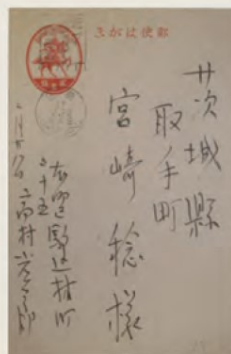 郵便はがき
茨城縣
取手町
宮崎稔様
本郷駒込林町
二十五
高村光太郎